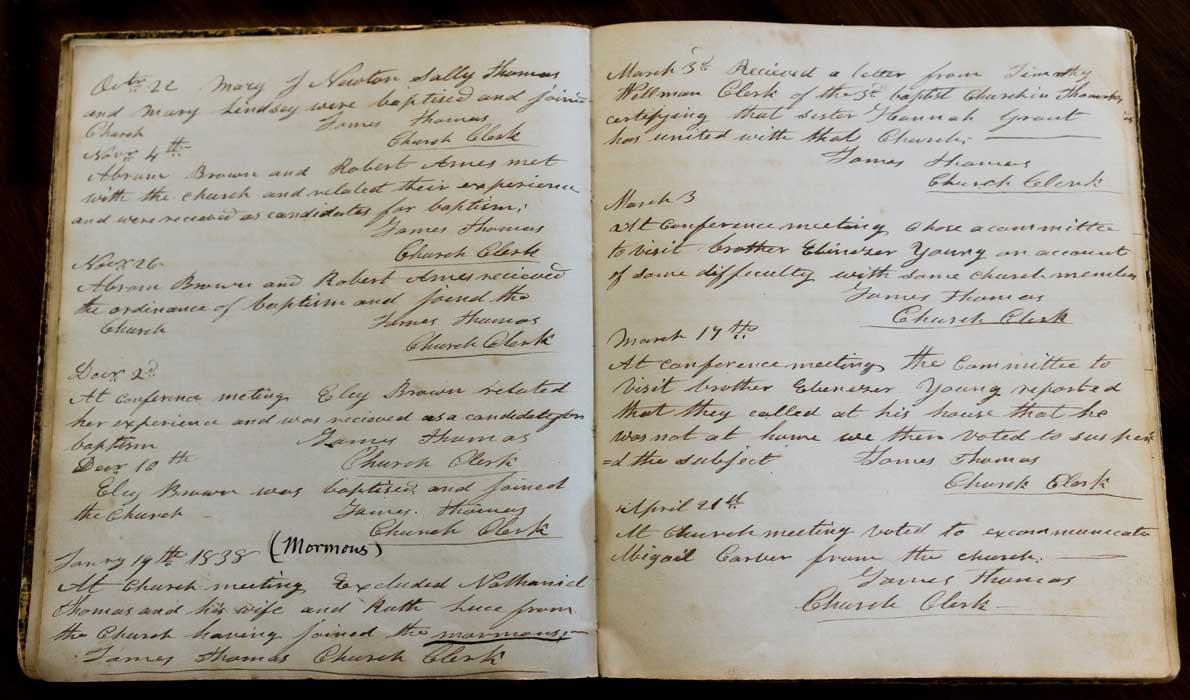 Octr 22 Mary J Newton Sally Thomas
and Mary Lindsey were baptised and joined
Church James Thomas
Church Clerk
Novr 4th
Abram Brown and Robert Ames met
with the church and related their experience
and were recieved as candidates for baptism;
James Thomas
Church Clerk
Novr 26
Abram Brown and Robert Ames recieved
the ordinance of baptism and joined the
Church James Thomas
Church Clerk
Decr 2d
At conference meting Eley Brown related
her experience and was recieved as a candidate for
baptism James Thomas
Decr 10th Church Clerk
Eley Brown was baptised and joined
the Church James Thomas
Church Clerk
Janry 19th 1838 (Mormons)
At Church meeting Excluded Nathaniel
Thomas and his wife and Ruth from
the Church having joined the mormons;
James Thomas Church Clerk
March 3d Recieved a letter from Timothy
Wellman Clerk of the 3d baptist Church in
certifying that sister Hannah Grant
has united with that Church;
James Thomas
Church Clerk
March 3
At Conference meeting Chose a committee
to visit brother Ebinezer Young on account
of some difficulty with some church members
James Thomas
Church Clerk
March 17th
At conference meeting the Committee to
visit brother Ebenezer Young reported
that they called at his house that he
was not at home we then voted to suspen
=d the subject James Thomas
Church Clerk
April 21th
At Church meeting voted to excommunicate
Abigail Carver from the church.
James Thomas
Church Clerk